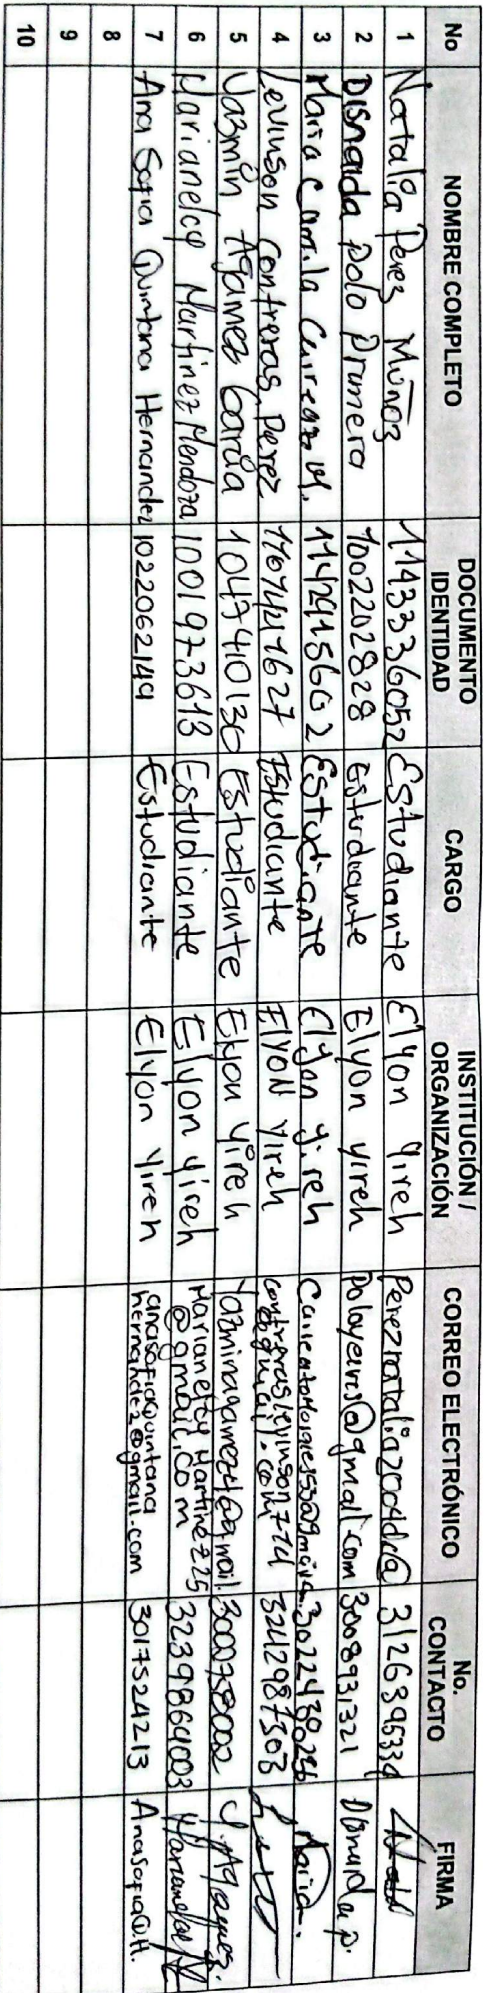 No NOMBRE COMPLETO DOCUMENTO IDENTIDAD CARGO INSTITUCIÓN / ORGANIZACIÓN CORREO ELECTRÓNICO No. CONTACTO FIRMA
1 Natalia Perez Muñoz 1143336052 Estudiante Elyon Yireh Pereznatalia2004dr@ 3126395334
2 Disnaida Polo Primera 1002202828 Estudiante Elyon yireh Poloyeims@gmail.com 3008931321 Disnaida p.
3 Maria Camila 1142915602 Estudiante Elyon yireh 3022438236 Maria.
4 Levinson Contreras Perez Estudiante ElYON Yireh contreraslevinson774@gmail.com 3242987303
5 Yazmin Agamez Garcia 1047410130 Estudiante Elyon yireh Yazminagamez4@gmail. 3000758002 Y. Agamez.
6 Marianelcy Martinez Mendoza 1001973613 Estudiante Elyon yireh Marianelcy Martinez25
@gmail.com 3239864003
7 Ana Sofia Quintana Hernandez 1022062149 Estudiante Elyon Yireh anasofiaquintana
hernandez@gmail.com 3017524213 AnaSofiaQ.H.
8
9
10